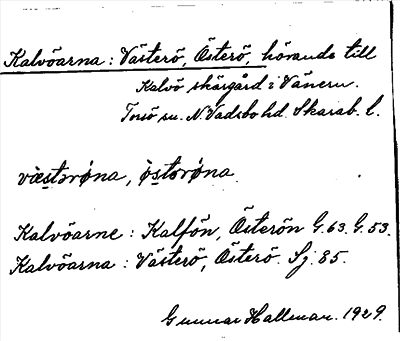 Kalvöarna: Västerö, Österö, hörande till
Kalvö skärgård i Vänern.
Torsö sn. N. Vadsbo hd. Skarab. l.
væstərøna, östərøna.
Kalvöarne: Kalfön, Österön G. 63. G. 53.
Kalvöarna: Västerö, Österö. Sj. 85.
Gunnar Hallman. 1929.